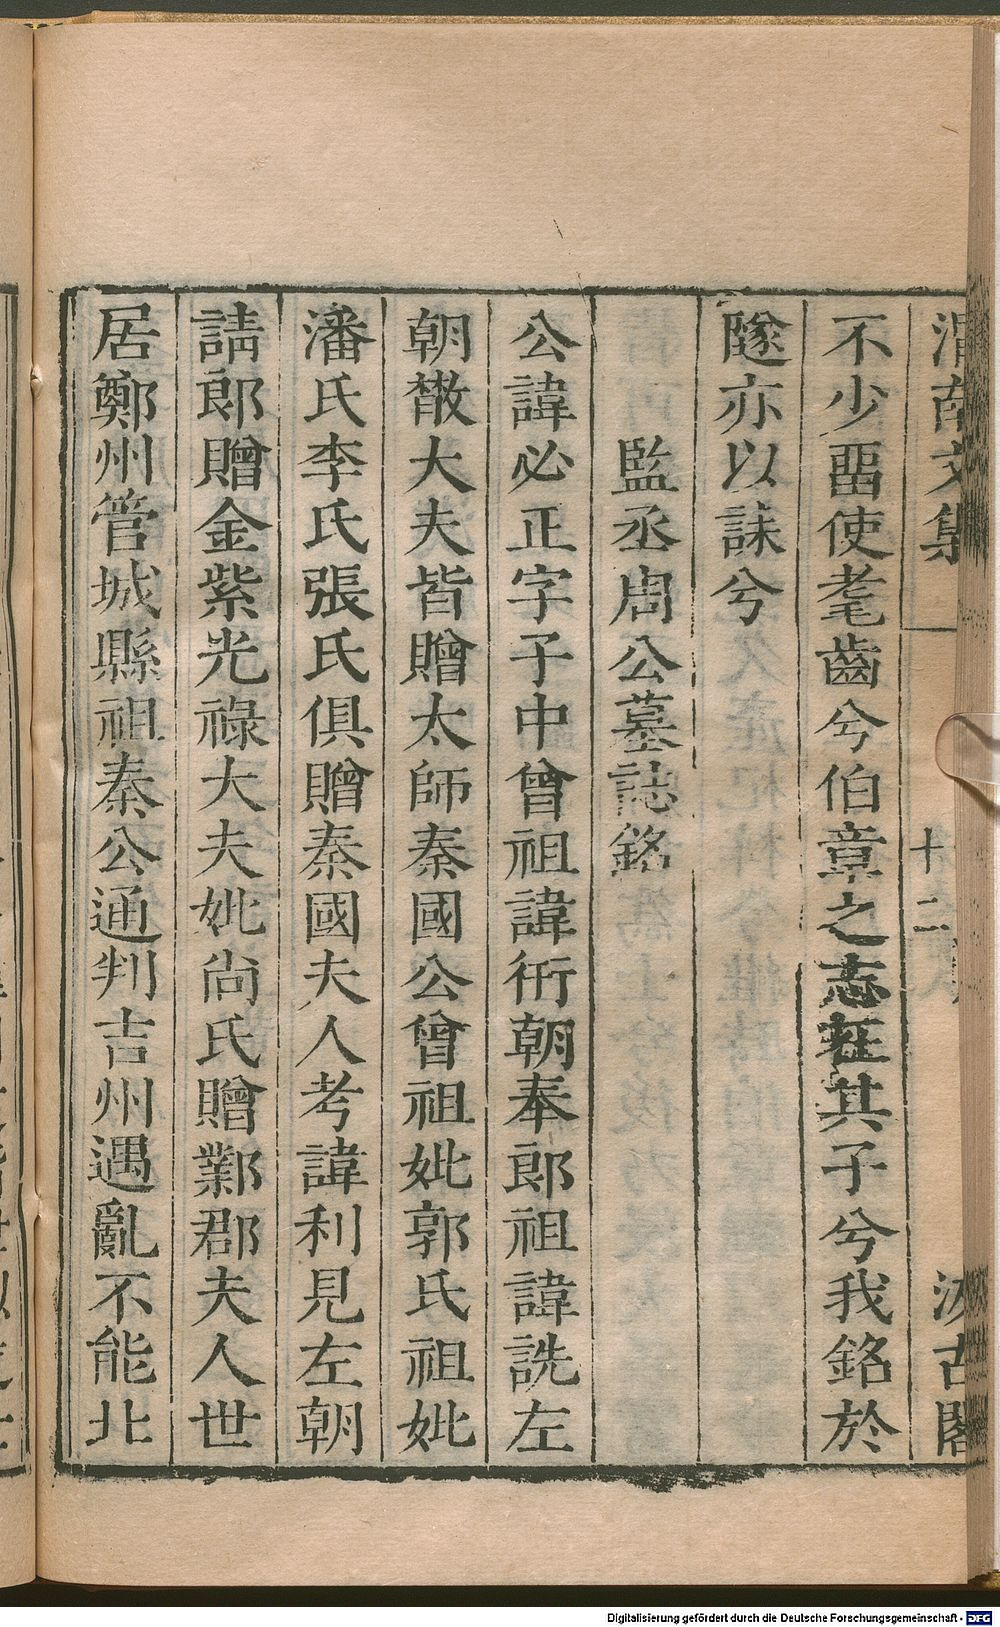 渭南文集
十二
汲古閣
不少畱使耄齒兮伯章之志在其子兮我銘於
隧亦以誄兮
監丞周公墓誌銘
公諱必正字子中曾祖諱衎朝奉郎祖諱詵左
朝散大夫皆贈太師秦國公曾祖妣郭氏祖妣
潘氏李氏張氏俱贈秦國夫人考諱利見左朝
請郎贈金紫光祿大夫妣尚氏贈鄴郡夫人世
居鄭州管城縣祖秦公通判吉州遇亂不能北
Digitalisierung gefördert durch die Deutsche Forschungsgemeinschaft - DFG